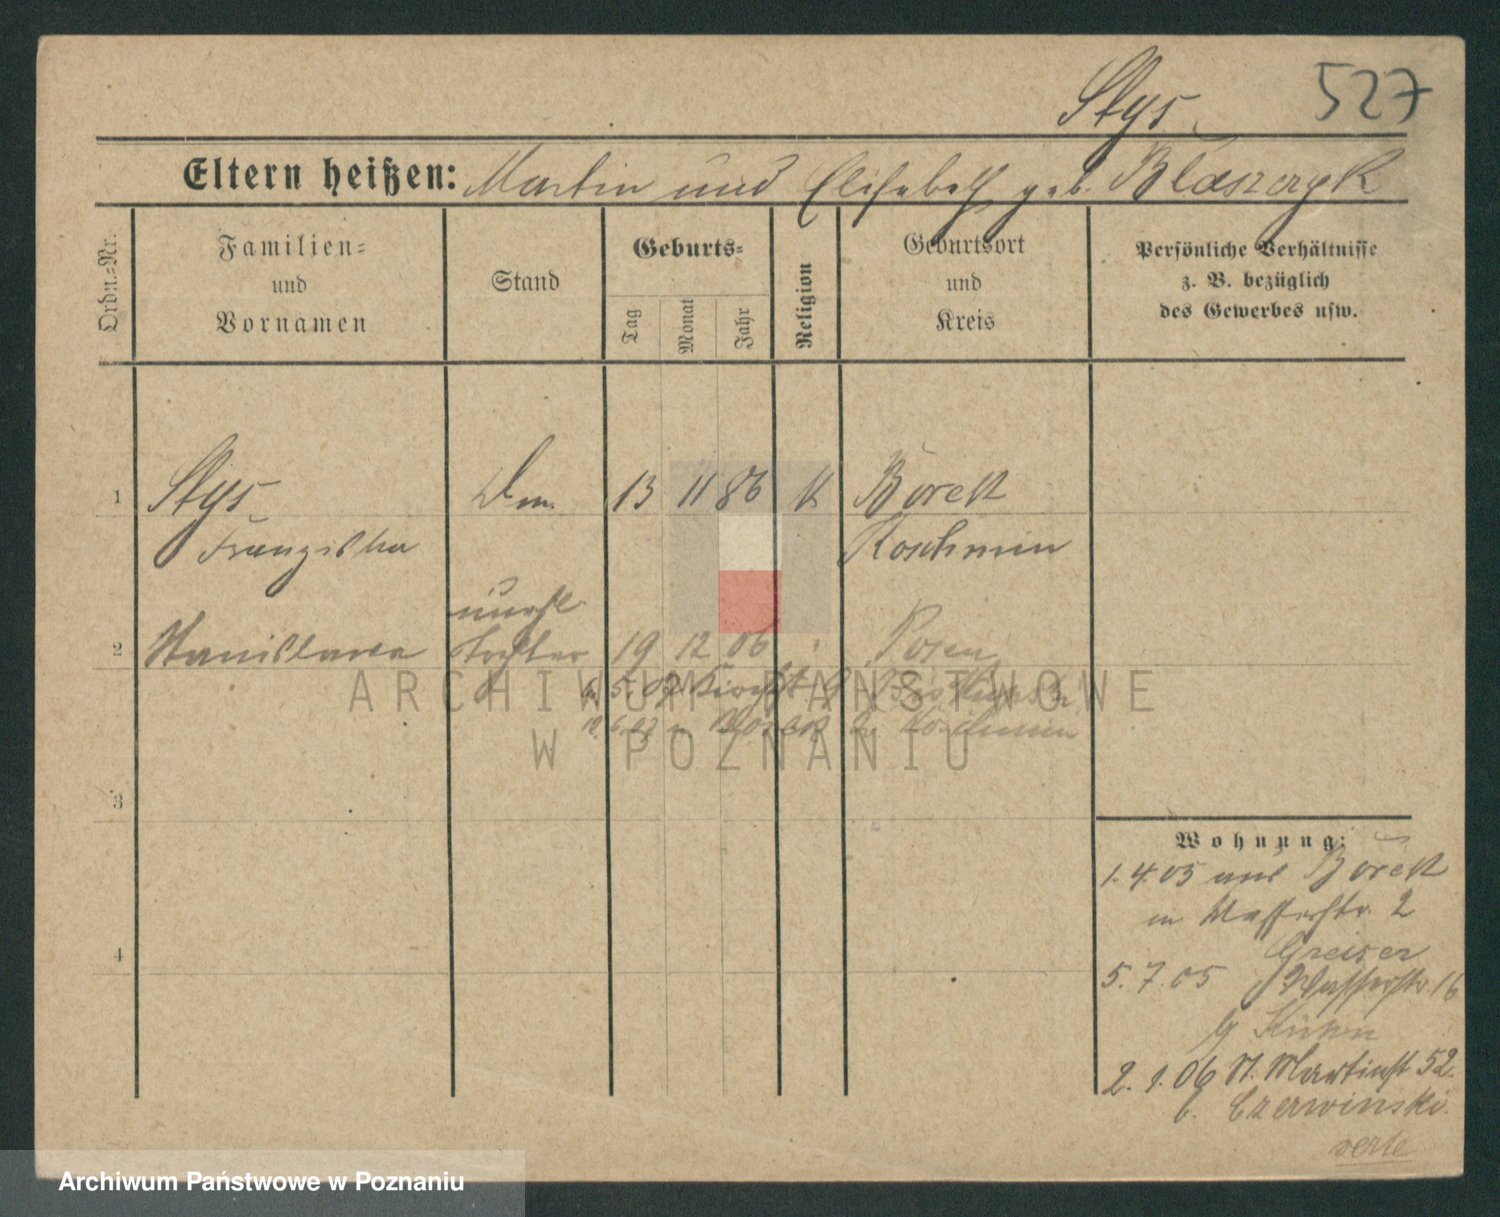 Stys
527
Eltern heißen: Martin und Elisabeth geb. Blaszczyk
Ordn.=Nr.
Familien=
und
Vornamen
Stand
Geburts=
Tag
Monat
Jahr
Religion
Geburtsort
und
Kreis
Persönliche Verhältnisse
z. B. bezüglich
des Gewerbes usw.
1
Stys
Franziska
13 11 86 K
Borek
Koschmin
2
Stanislawa
unehl.
Tochter
19 12 06
Posen
5.07
Borek Koschmin
3
4
Wohnung:
1.4.05 aus Borek
in Wasserstr. 2
Greiser
5.7.05 Wasserstr. 16
2.1.06 St. Martinst 52.
b. Czerwinski.
verte
ARCHIWUM PAŃSTWOWE
W POZNANIU
Archiwum Państwowe w Poznaniu